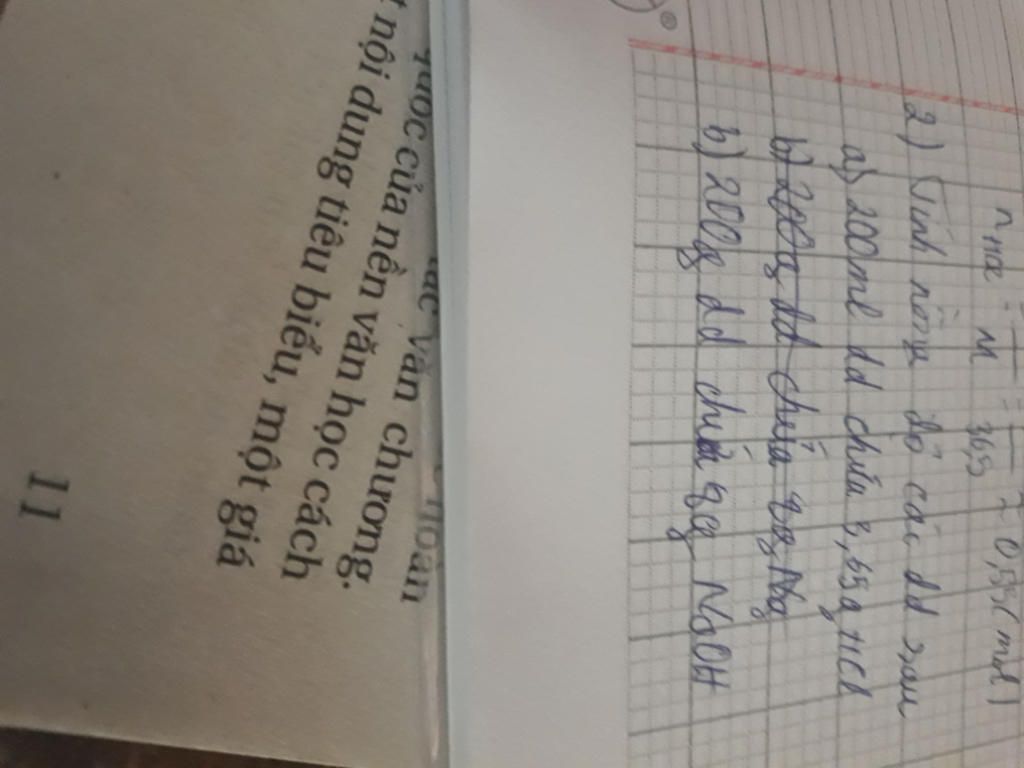 n HCl = m/M = /36,5 = 0,55 (mol)
2) Tính nồng độ các dd sau
a) 200ml dd chứa 3,65g HCl
b) 200g dd chứa
b) 200g dd chứa 8g NaOH
®
văn chương.
quốc của nền văn học cách
nội dung tiêu biểu, một giá
11